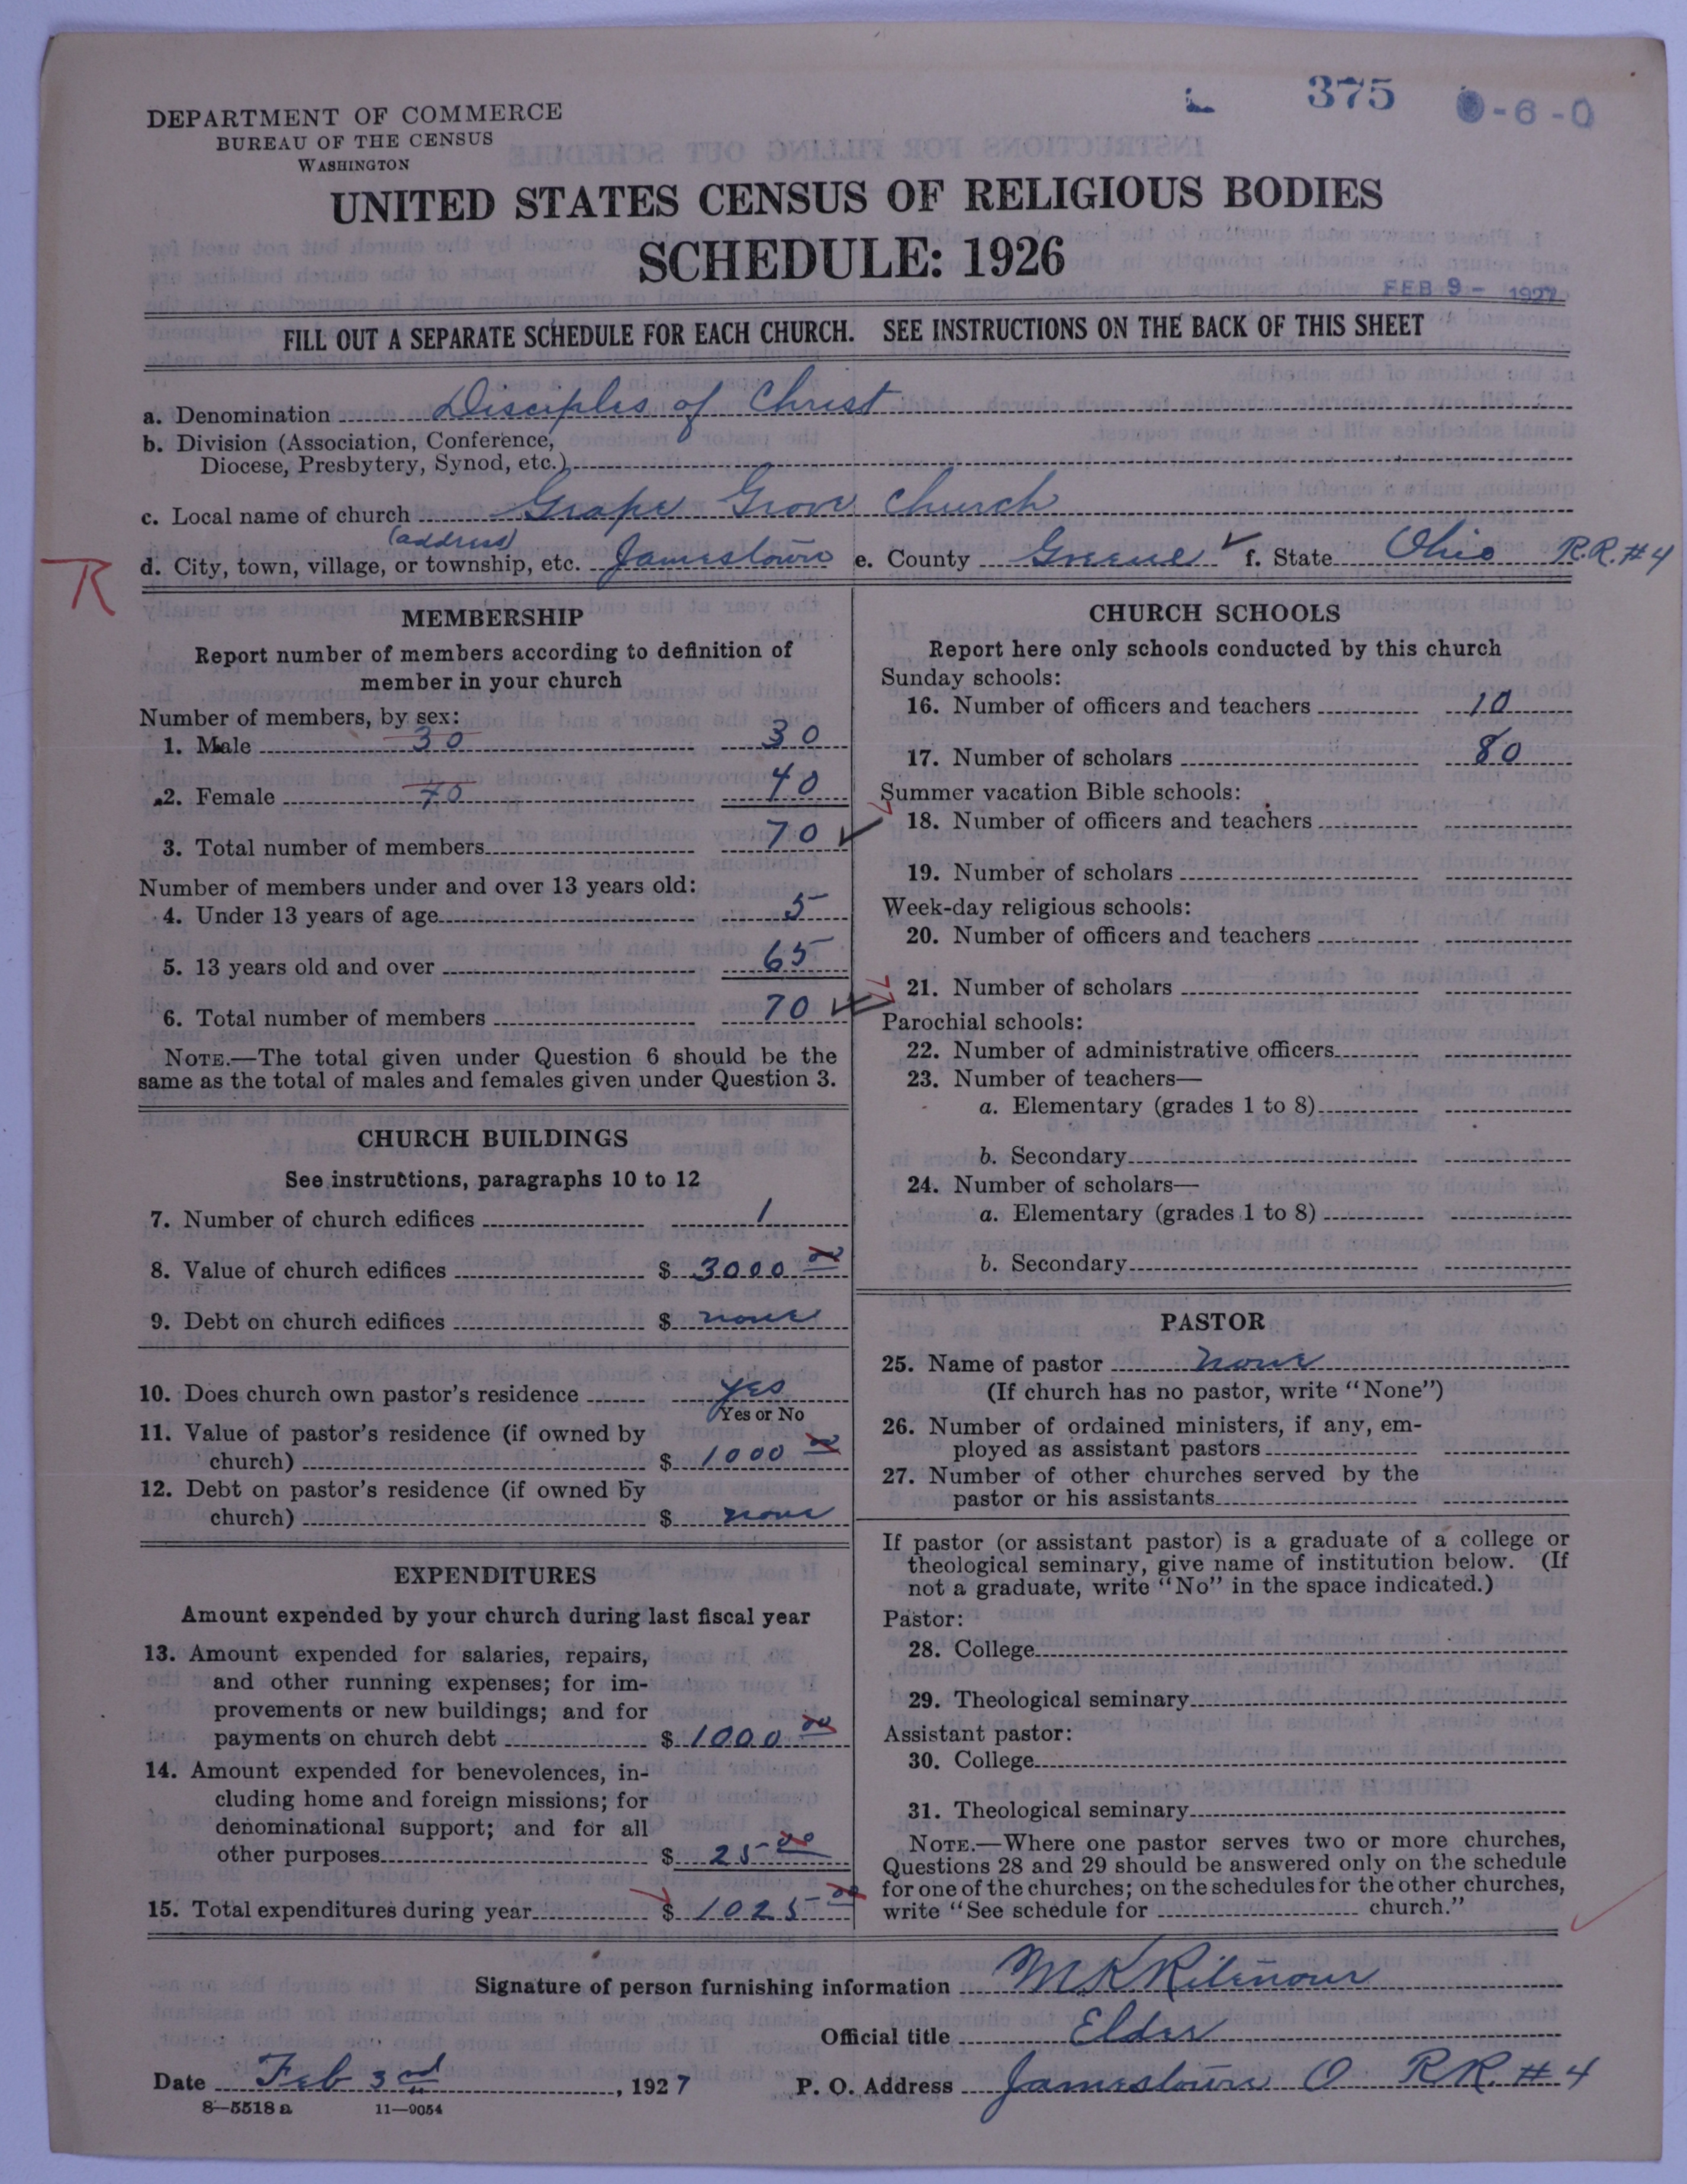 375
-6-0
DEPARTMENT OF COMMERCE
BUREAU OF THE CENSUS
WASHINGTON
UNITED STATES CENSUS OF RELIGIOUS BODIES
SCHEDULE: 1926
FEB 9 - 1927
FILL OUT A SEPARATE SCHEDULE FOR EACH CHURCH. SEE INSTRUCTIONS ON THE BACK OF THIS SHEET
a. Denomination Disciples of Christ
b. Division (Association, Conference,
Diocese, Presbytery, Synod, etc.)
c. Local name of church Grape Grove Church
(address)
d. City, town, village, or township, etc. Jamestown e. County Greene f. State Ohio R.R.#4
R
MEMBERSHIP
Report number of members according to definition of
member in your church
Number of members, by sex:
1. Male 30 30
2. Female 70 40
3. Total number of members 70
Number of members under and over 13 years old:
4. Under 13 years of age 5
5. 13 years old and over 65
6. Total number of members 70
NOTE.—The total given under Question 6 should be the
same as the total of males and females given under Question 3.
CHURCH BUILDINGS
See instructions, paragraphs 10 to 12
7. Number of church edifices 1
8. Value of church edifices $ 3000 00
9. Debt on church edifices $ none
10. Does church own pastor's residence yes
Yes or No
11. Value of pastor's residence (if owned by
church) $ 1000 00
12. Debt on pastor's residence (if owned by
church) $ none
EXPENDITURES
Amount expended by your church during last fiscal year
13. Amount expended for salaries, repairs,
and other running expenses; for im-
provements or new buildings; and for
payments on church debt $ 1000 00
14. Amount expended for benevolences, in-
cluding home and foreign missions; for
denominational support; and for all
other purposes $ 25 00
15. Total expenditures during year $ 1025 00
CHURCH SCHOOLS
Report here only schools conducted by this church
Sunday schools:
16. Number of officers and teachers 10
17. Number of scholars 80
Summer vacation Bible schools:
18. Number of officers and teachers
19. Number of scholars
Week-day religious schools:
20. Number of officers and teachers
21. Number of scholars
Parochial schools:
22. Number of administrative officers
23. Number of teachers—
a. Elementary (grades 1 to 8)
b. Secondary
24. Number of scholars—
a. Elementary (grades 1 to 8)
b. Secondary
PASTOR
25. Name of pastor none
(If church has no pastor, write "None")
26. Number of ordained ministers, if any, em-
ployed as assistant pastors
27. Number of other churches served by the
pastor or his assistants
If pastor (or assistant pastor) is a graduate of a college or
theological seminary, give name of institution below. (If
not a graduate, write "No" in the space indicated.)
Pastor:
28. College
29. Theological seminary
Assistant pastor:
30. College
31. Theological seminary
NOTE.—Where one pastor serves two or more churches,
Questions 28 and 29 should be answered only on the schedule
for one of the churches; on the schedules for the other churches,
write "See schedule for church."
Signature of person furnishing information M K Ritenour
Official title Elder
Date Feb 3rd, 1927 P. O. Address Jamestown O RR. #4
8—5518 a 11—9054